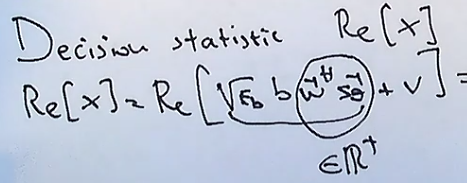 Decision statistic Re[x]
Re[x] = Re[√E_b b w⃗^H s⃗_θ + v] =
∈ℝ⁺